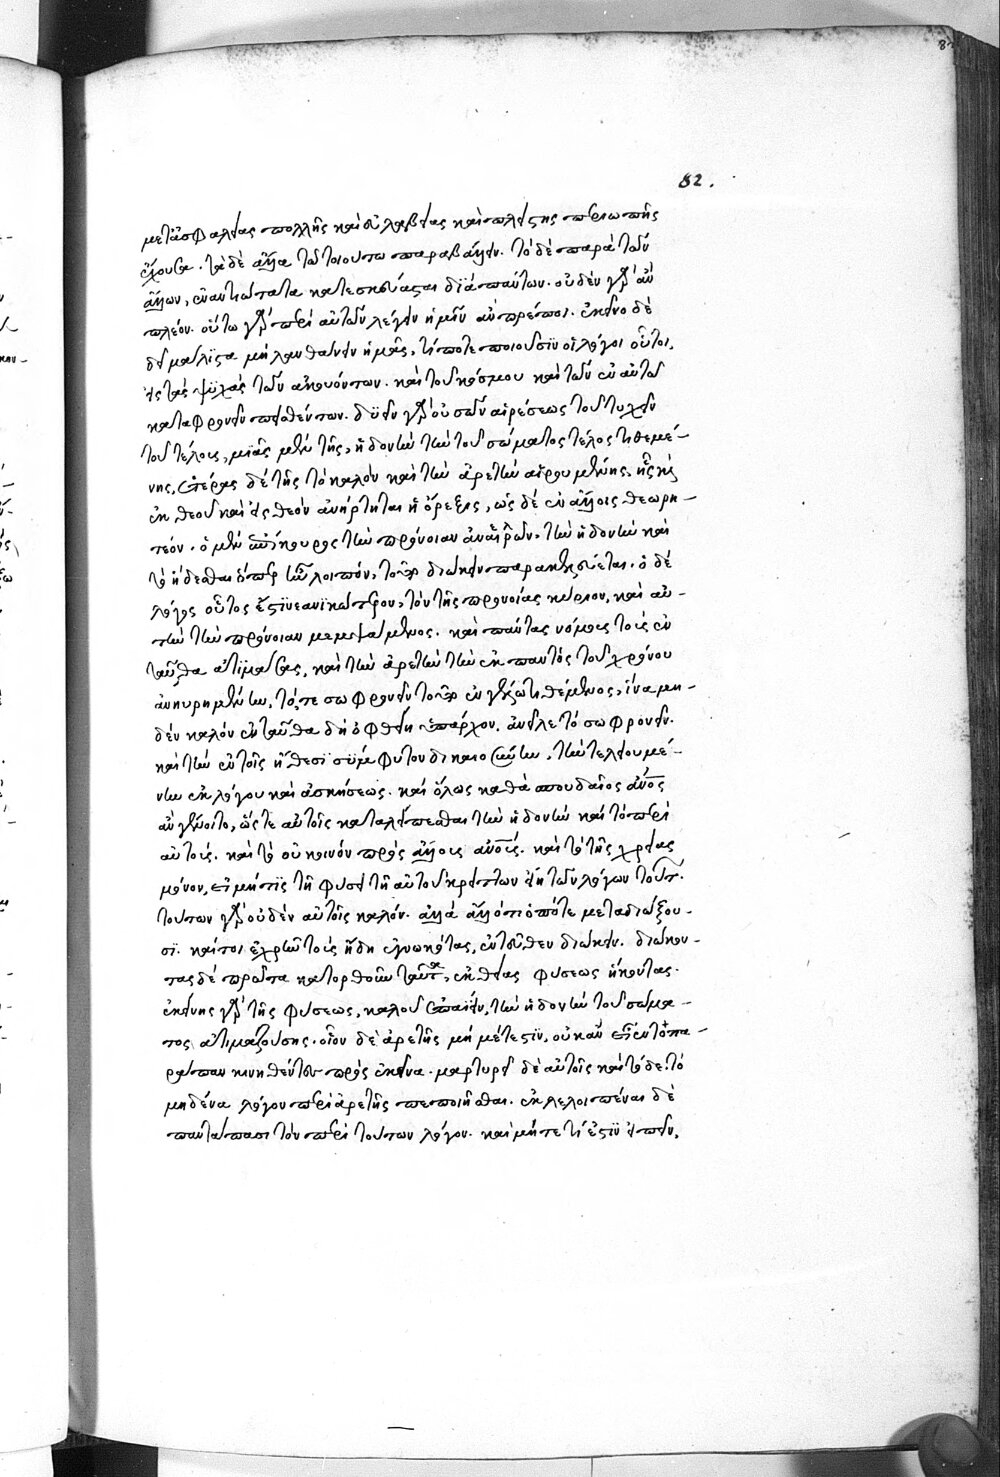 μετὰ ἀσφαλείας πολλῆς καὶ εὐλαβείας καὶ πλείστης περιωπῆς
ἔχουσα. τὰ δὲ ἄλλα τῷ τοιούτω παραβάλλειν. τὸ δὲ παρὰ τῶν
ἄλλων, ἐναντιώτατα κατεσκεύασται διὰ πάντων. οὐδὲν γὰρ ἂν
πλέον. οὕτω γὰρ περὶ αὐτῶν λέγειν ἡμῖν ἂν πρέποι. ἐκεῖνο δὲ
δεῖ μάλιστα μὴ λανθάνειν ἡμᾶς, τί ποτε ποιοῦσιν οἱ λόγοι οὗτοι,
εἰς τὰς ψυχὰς τῶν ἀκουόντων. καὶ τοῦ κόσμου καὶ τῶν ἐν αὐτῷ
καταφρονεῖν πεισθέντων. δυεῖν γὰρ οὐσῶν αἱρέσεως τοῦ τυχεῖν
τοῦ τέλους, μιᾶς μὲν τῆς, ἡδονὴν τὴν τοῦ σώματος τέλος τιθεμέ-
νης, ἑτέρας δὲ τῆς τὸ καλὸν καὶ τὴν ἀρετὴν αἱρουμένης, ἧς καὶ
ἐκ θεοῦ καὶ εἰς θεὸν ἀνήρτηται ἡ ὄρεξις, ὡς δὲ ἐν ἄλλοις θεωρη-
τέον. ὁ μὲν ἐπίκουρος τὴν πρόνοιαν ἀναιρῶν, τὴν ἡδονὴν καὶ
τὸ ἥδεσθαι ὅπερ ἦν λοιπόν, τοῦτο διώκειν παρακελεύεται. ὁ δὲ
λόγος οὗτος ἔτι νεανικώτερον, τὸν τῆς προνοίας κύριον, καὶ αὐ-
τὴν τὴν πρόνοιαν μεμψάμενος. καὶ πάντας νόμους τοὺς ἐν
ταῦθα ἀτιμάσας, καὶ τὴν ἀρετὴν τὴν ἐκ παντὸς τοῦ χρόνου
ἀνηυρημένην, τό, τε σωφρονεῖν τοῦτο ἐν γέλωτι θέμενος, ἵνα μη-
δὲν καλὸν ἐνταῦθα δὴ ὀφθείη ὑπάρχον, ἀνεῖλε τὸ σωφρονεῖν.
καὶ τὴν ἐν τοῖς ἤθεσι σύμφυτον δικαιοσύνην, τὴν τελειουμέ-
νην ἐκ λόγου καὶ ἀσκήσεως. καὶ ὅλως καθὰ σπουδαῖος ἄνος
ἂν γένοιτο, ὥςτε αὐτοῖς καταλείπεσθαι τὴν ἡδονὴν καὶ τὸ περὶ
αὐτούς. καὶ τὸ οὐ κοινὸν πρὸς ἄλλους ἀνους. καὶ τὸ τῆς χρείας
μόνον, εἰ μή τις τῇ φύσει τῇ αὐτοῦ κρείττων εἴη τῶν λόγων τούτ.
τούτων γὰρ οὐδὲν αὐτοῖς καλόν. ἀλλὰ ἄλλό τι ὁπότε μεταδιώξου-
σι. καίτοι ἐχρῆν τοὺς ἤδη ἐγνωκότας, ἐντεῦθεν διώκειν. διώκον-
τας δὲ πρῶτα κατορθοῦν ταῦτα, ἐκ θείας φύσεως ἥκοντας.
ἐκείνης γὰρ τῆς φύσεως, καλοῦ ἐπαΐειν, τὴν ἡδονὴν τοῦ σώμα-
τος ἀτιμαζούσης. οἷον δὲ ἀρετῆς μὴ μέτεστιν, οὐκ ἂν εἶεν τοπα-
ράπαν κινηθέντες πρὸς ἐκεῖνα. μαρτυρεῖ δὲ αὐτοῖς καὶ τόδε. τὸ
μηδένα λόγον περὶ ἀρετῆς πεποιῆσθαι. ἐκλελοιπέναι δὲ
παντάπασι τὸν περὶ τούτων λόγον. καὶ μήτε τί ἐστιν εἰπεῖν,